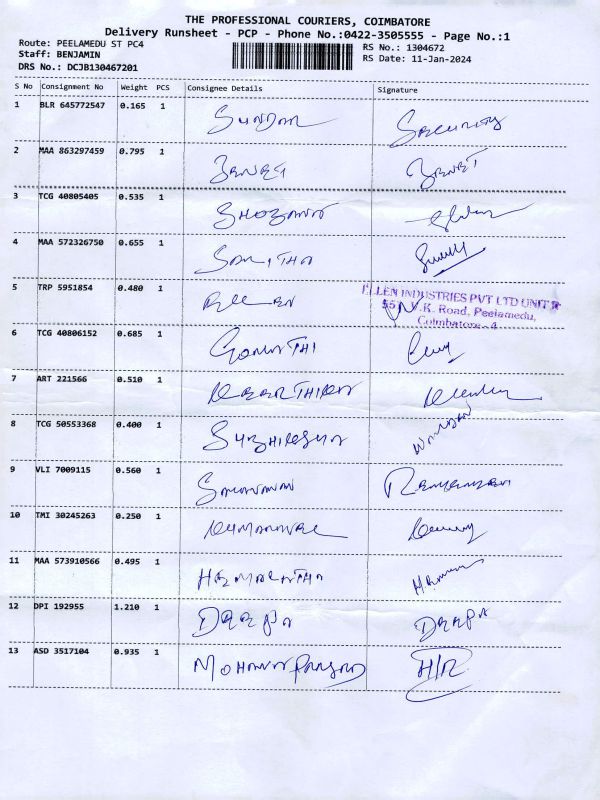 THE PROFESSIONAL COURIERS, COIMBATORE
Delivery Runsheet - PCP - Phone No.:0422-3505555 - Page No.:1
Route: PEELAMEDU ST PC4
Staff: BENJAMIN
DRS No.: DCJB130467201
RS No.: 1304672
RS Date: 11-Jan-2024
S No Consignment No Weight PCS Consignee Details Signature
1 BLR 645772547 0.165 1 SUNDAR SECURITY
2 MAA 863297459 0.795 1 ZENET ZENET
3 TCG 40805405 0.535 1 SHOBANA
4 MAA 572326750 0.655 1 SARITHA
5 TRP 5951854 0.480 1
ELLEN INDUSTRIES PVT LTD UNIT
V.K. Road, Peelamedu,
Coimbatore - 4
6 TCG 40806152 0.685 1 GOMATHI
7 ART 221566 0.510 1 KEERTHIKA
8 TCG 50553368 0.400 1
9 VLI 7009115 0.560 1 SARAVANAN
10 TMI 30245263 0.250 1 KUMARAVEL
11 MAA 573910566 0.495 1 HEMALATHA
12 DPI 192955 1.210 1 DEEPA DEEPA
13 ASD 3517104 0.935 1 MOHANAPRASAD